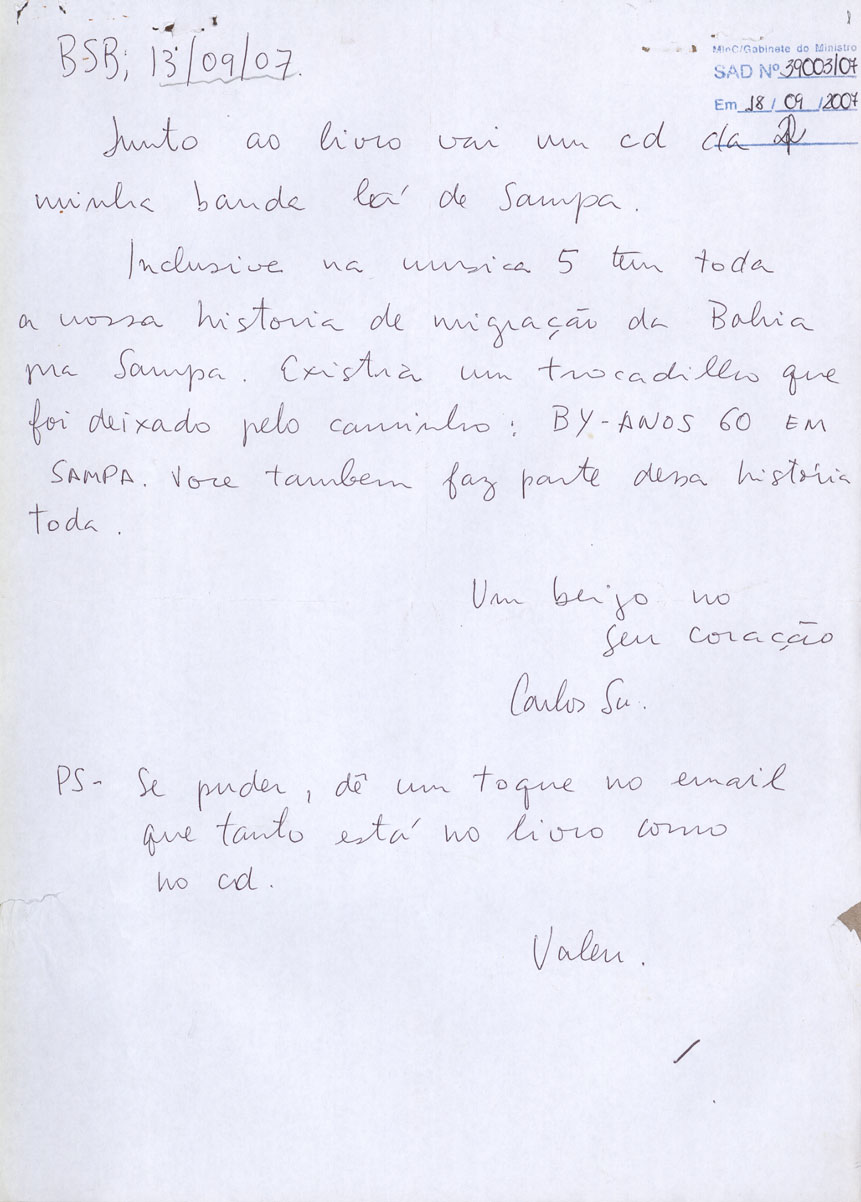 BSB, 13/09/07.
MinC/Gabinete do Ministro
SAD Nº 39003/07
Em 18 / 09 / 2007
Junto ao livro vai um cd da
minha banda lá de Sampa.
Inclusive na musica 5 tem toda
a nossa historia de migração da Bahia
pra Sampa. Existia um trocadilho que
foi deixado pelo caminho: BY-ANOS 60 EM
SAMPA. Voce tambem faz parte dessa história
toda.
Um beijo no
seu coração
Carlos Su.
PS- Se puder, dê um toque no email
que tanto está no livro como
no cd.
Valeu.